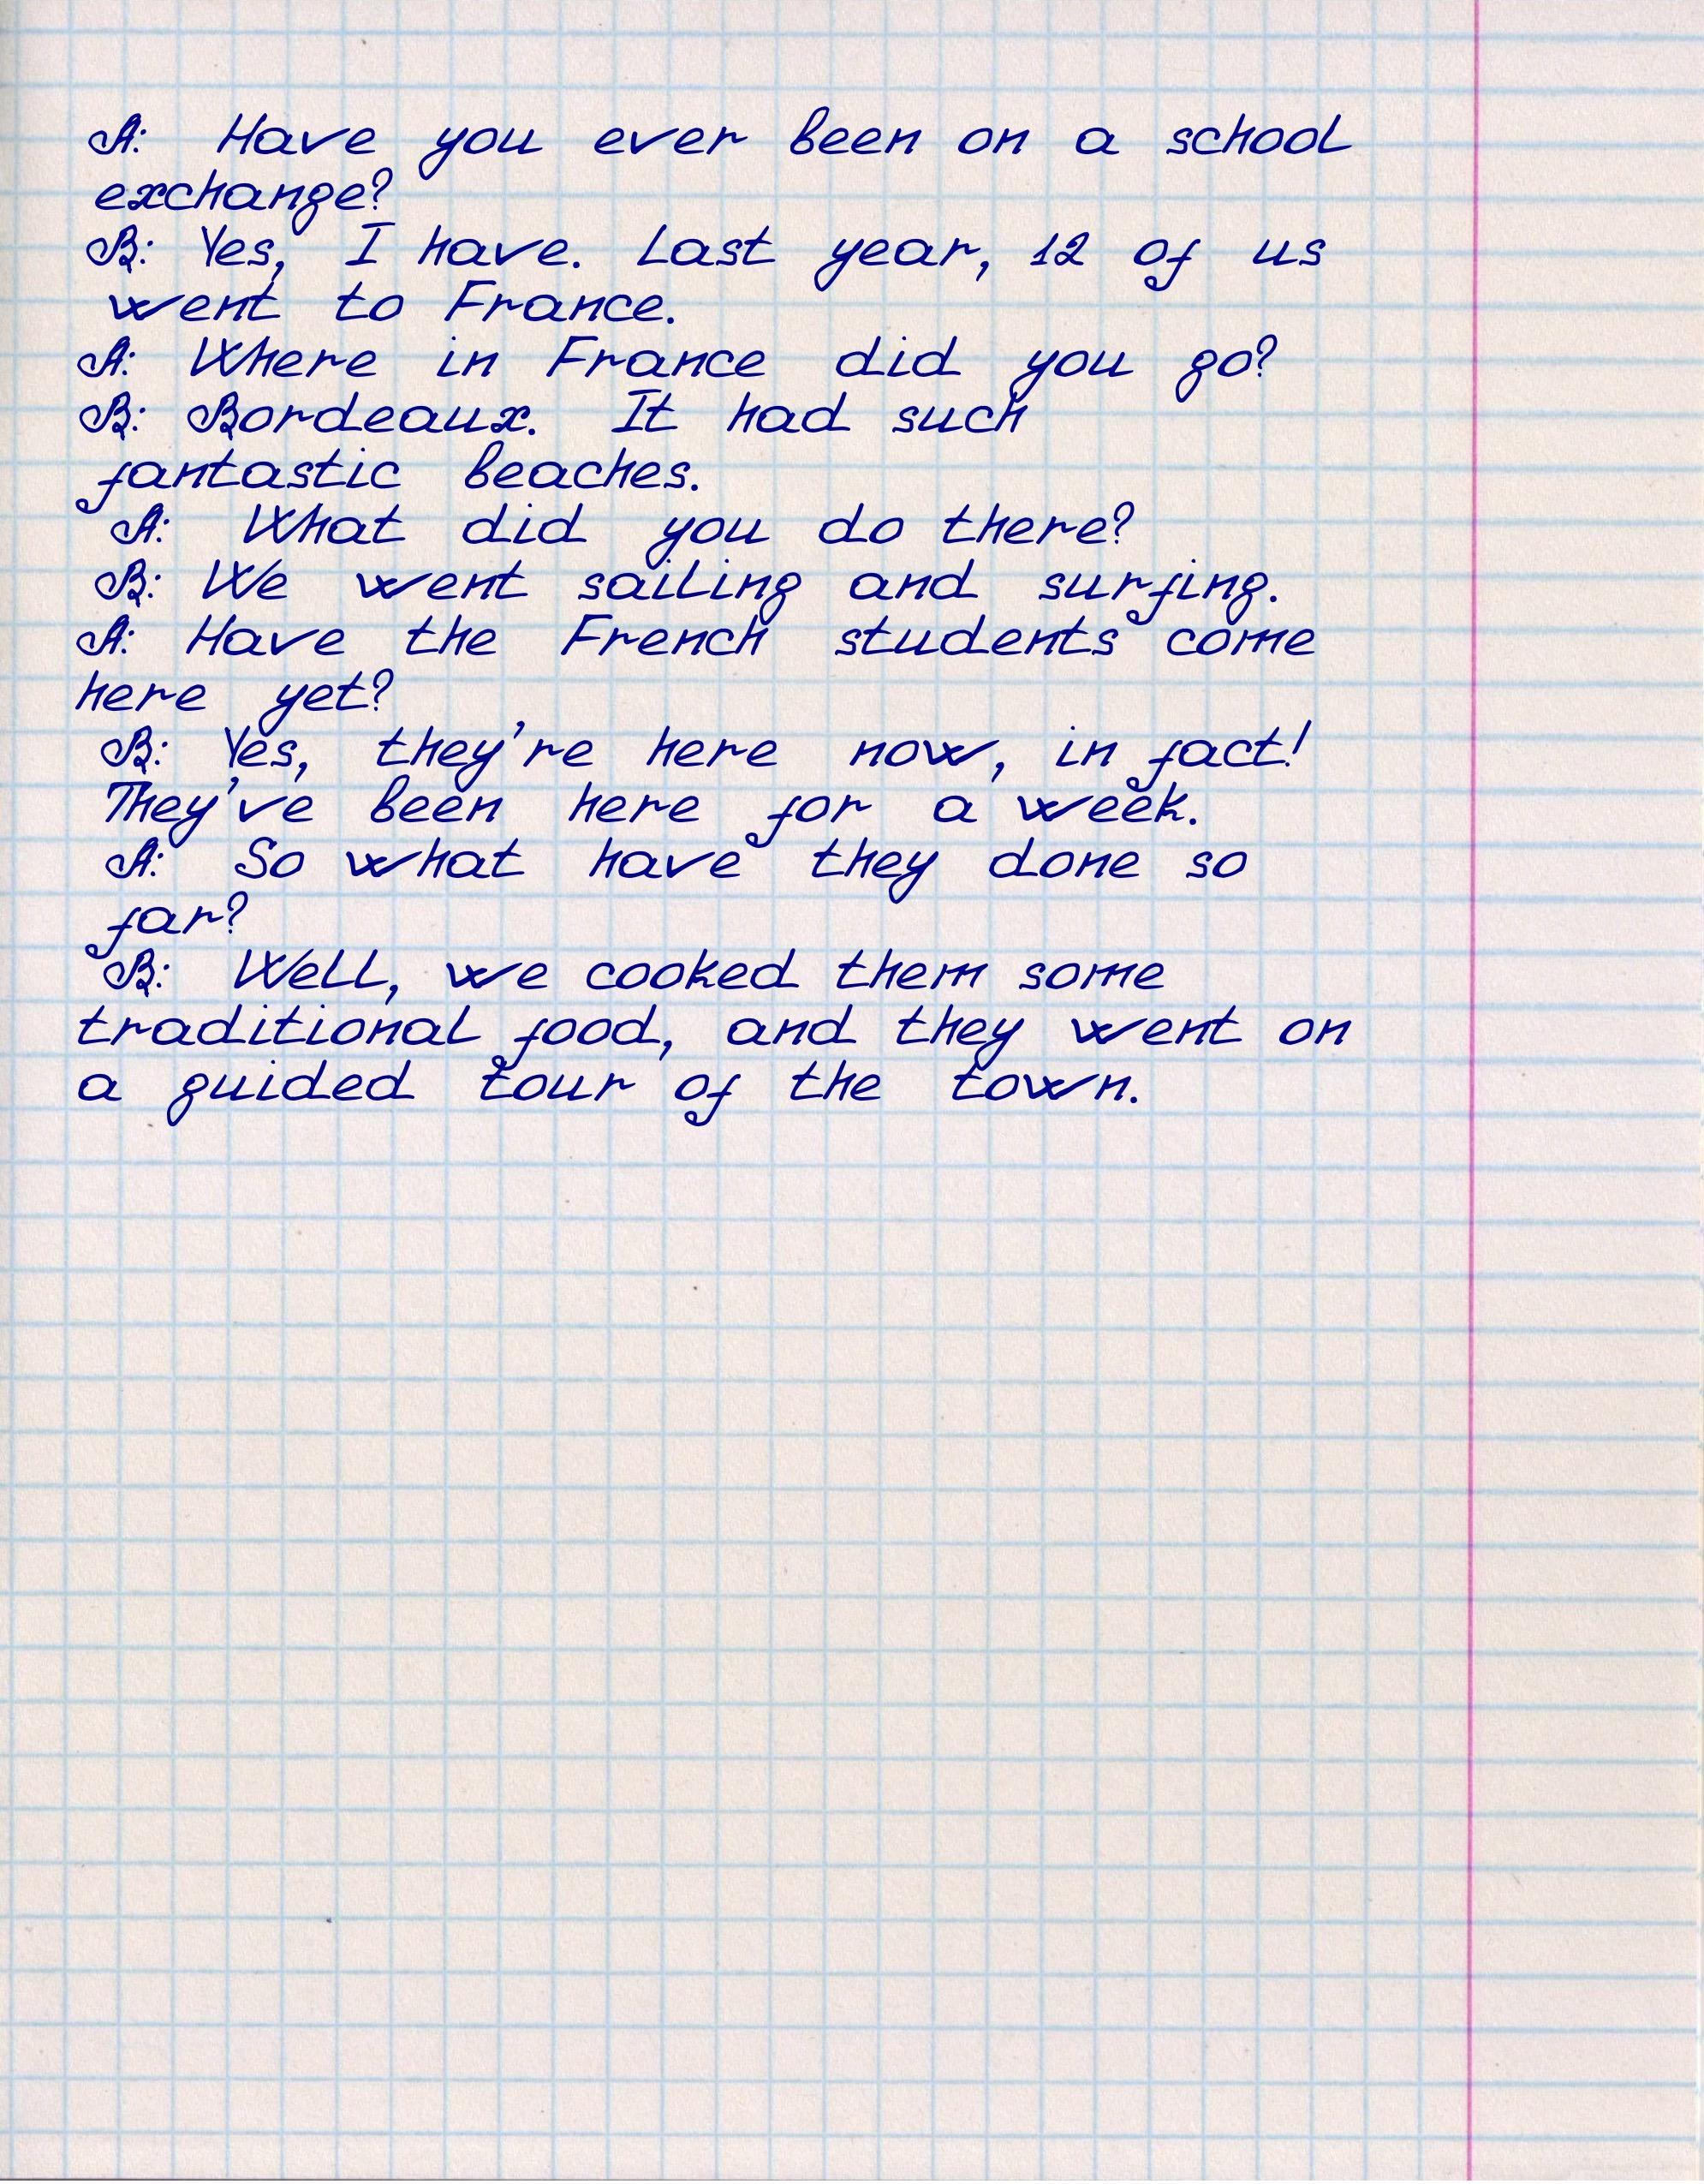 A: Have you ever been on a school
exchange?
B: Yes, I have. Last year, 12 of us
went to France.
A: Where in France did you go?
B: Bordeaux. It had such
fantastic beaches.
A: What did you do there?
B: We went sailing and surfing.
A: Have the French students come
here yet?
B: Yes, they're here now, in fact!
They've been here for a week.
A: So what have they done so
far?
B: Well, we cooked them some
traditional food, and they went on
a guided tour of the town.